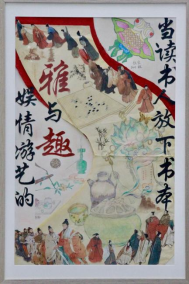 当读书人放下书本
雅与趣
娱情游艺的